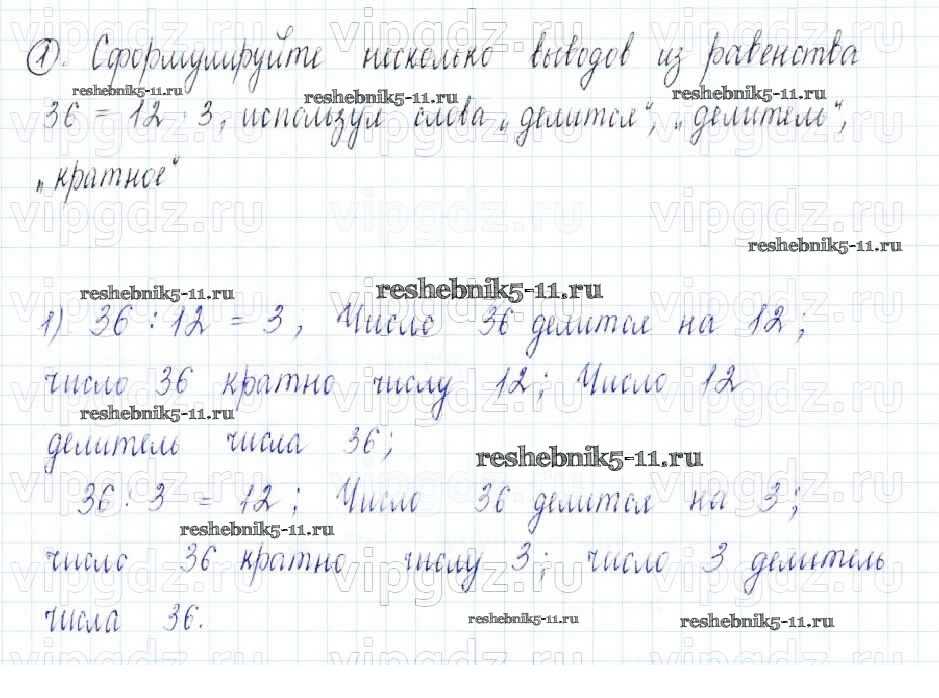 vipgdz.ru vipgdz.ru vipgdz.ru
①. Сформулируйте несколько выводов из равенства
reshebnik5-11.ru reshebnik5-11.ru reshebnik5-11.ru
36 = 12 · 3, используя слова „делится“, „делитель“,
vipgdz.ru vipgdz.ru vipgdz.ru
„кратное“
vipgdz.ru vipgdz.ru vipgdz.ru
reshebnik5-11.ru
reshebnik5-11.ru reshebnik5-11.ru
vipgdz.ru vipgdz.ru vipgdz.ru
1) 36 : 12 = 3, Число 36 делится на 12;
число 36 кратно числу 12; Число 12
vipgdz.ru vipgdz.ru vipgdz.ru
reshebnik5-11.ru
делитель числа 36;
reshebnik5-11.ru
vipgdz.ru vipgdz.ru vipgdz.ru
36 : 3 = 12; Число 36 делится на 3;
reshebnik5-11.ru
число 36 кратно числу 3; число 3 делитель
vipgdz.ru vipgdz.ru vipgdz.ru
числа 36.
reshebnik5-11.ru reshebnik5-11.ru
vipgdz.ru vipgdz.ru vipgdz.ru